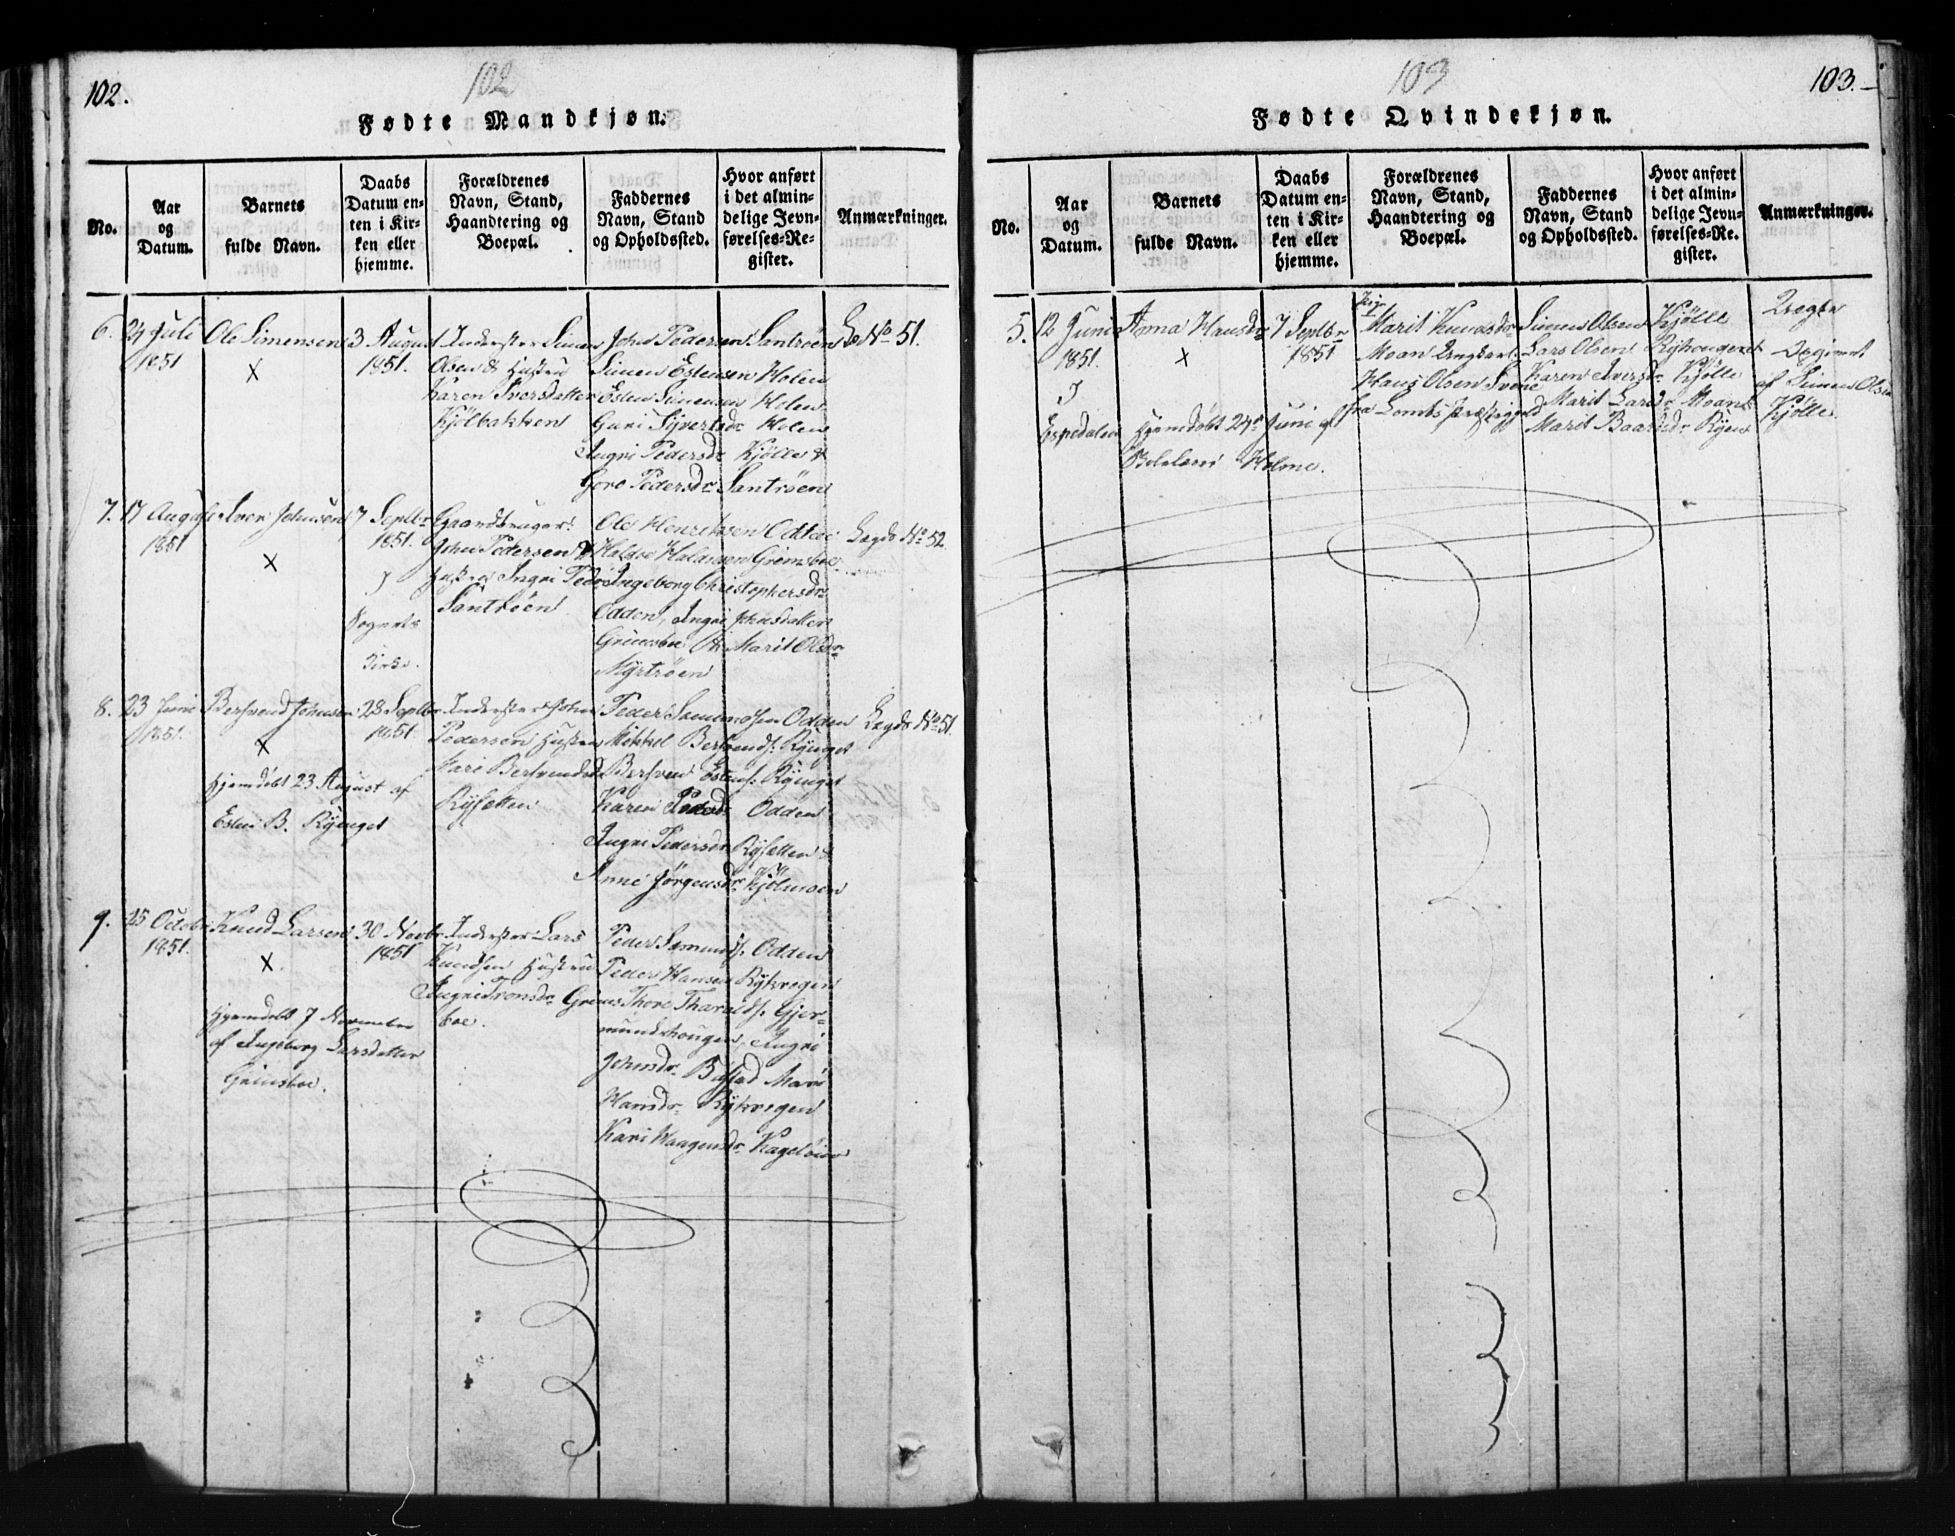 102.
102
Fødte Mandkjøn.
No.
Aar
og
Datum.
Barnets
fulde Navn.
Daabs
Datum en-
ten i Kir-
ken eller
hjemme.
Forældrenes
Navn, Stand,
Haandtering og
Boepæl.
Faddernes
Navn, Stand
og Opholdssted.
Hvor anført
i det almin-
delige Jevn-
førelses-Re-
gister.
Anmærkninger.
6.
24 Juli
1851
Ole Simensen
X
3 August
1851.
Inderster Simen
Olsen & Hustru
Karen Iversdatter
Kjölbakken
John Pedersen Santröen
Simen Estensen Holen
Esten Simensen Holen
Guri Syvertsdr Holen
Ingri Pedersdr Kjölle &
Goro Pedersdr Santröen
No 51.
7.
17 August
1851
Iver Johnsen
X
7 Septbr
1851.
I
Sognets
Kirke.
Gaardbruger
John Pedersen &
Hustru Ingri Peders
Santröen
Ole Henriksen Odden
Halvorsen Grimsboe
Ingeborg Christophersdr
Odden, Ingri Johnsdatter
Grimsboe Marit Olsdr
Myrtröen
Lægds No 52
8.
23 Juni
1851.
Berfvend Johnsen
X
Hjemdöbt 23 August af
Esten B. Ryenget
28 Septbr
1851
Inderster John
Pedersen Hustru
Kari Berfvendsd
Rysetten
Peder Samundsen Odden
Mikkel Berfvends. Ryenget
Berfven Estens. Ryenget
Karen Pedersd Odden
Ingri Pedersdr Rysetten &
Anne Jörgensdr Kjölmoen
Lægds No 51.
9.
25 Octobr
1851.
Knud Larsen
X
Hjemdöbt 7 November
af Ingeborg Larsdatter
Grimsboe.
30 Novbr
1851
Inderster Lars
Knudsen Hustru
Ingri Tronsdr Grims
boe.
Peder Samunds. Odden
Peder Hansen Rykvegen
Thore Tharalds. Gjer-
mundshougen, Ingri
Johnsdr. Mari
Hansdr. Rykvegen
Kari Haagensdr.
103
103.
Fødte Qvindekjøn.
No.
Aar
og
Datum.
Barnets
fulde Navn.
Daabs
Datum en-
ten i Kir-
ken eller
hjemme.
Forældrenes
Navn, Stand,
Haandtering og
Boepæl.
Faddernes
Navn, Stand
og Opholdssted.
Hvor anført
i det almin-
delige Jevn-
førelses-Re-
gister.
Anmærkninger.
5.
12 Juni
1851.
I
Espedalen
Anna Hansdr
X
Hjemdöbt 24de Juni af
Holme.
7 Septbr
1851
Pige
Marit Knudsdr
Moan Ungkarl
Hans Olsen Svene
fra Lomb Præstegjeld
Simen Olsen Kjölle
Lars Olsen Ryhougen
Karen Iversdr Kjölle
Marit Larsdr Moan
Marit Baardsdr Ryen
Uægte
af Simen Olsen
Kjölle.